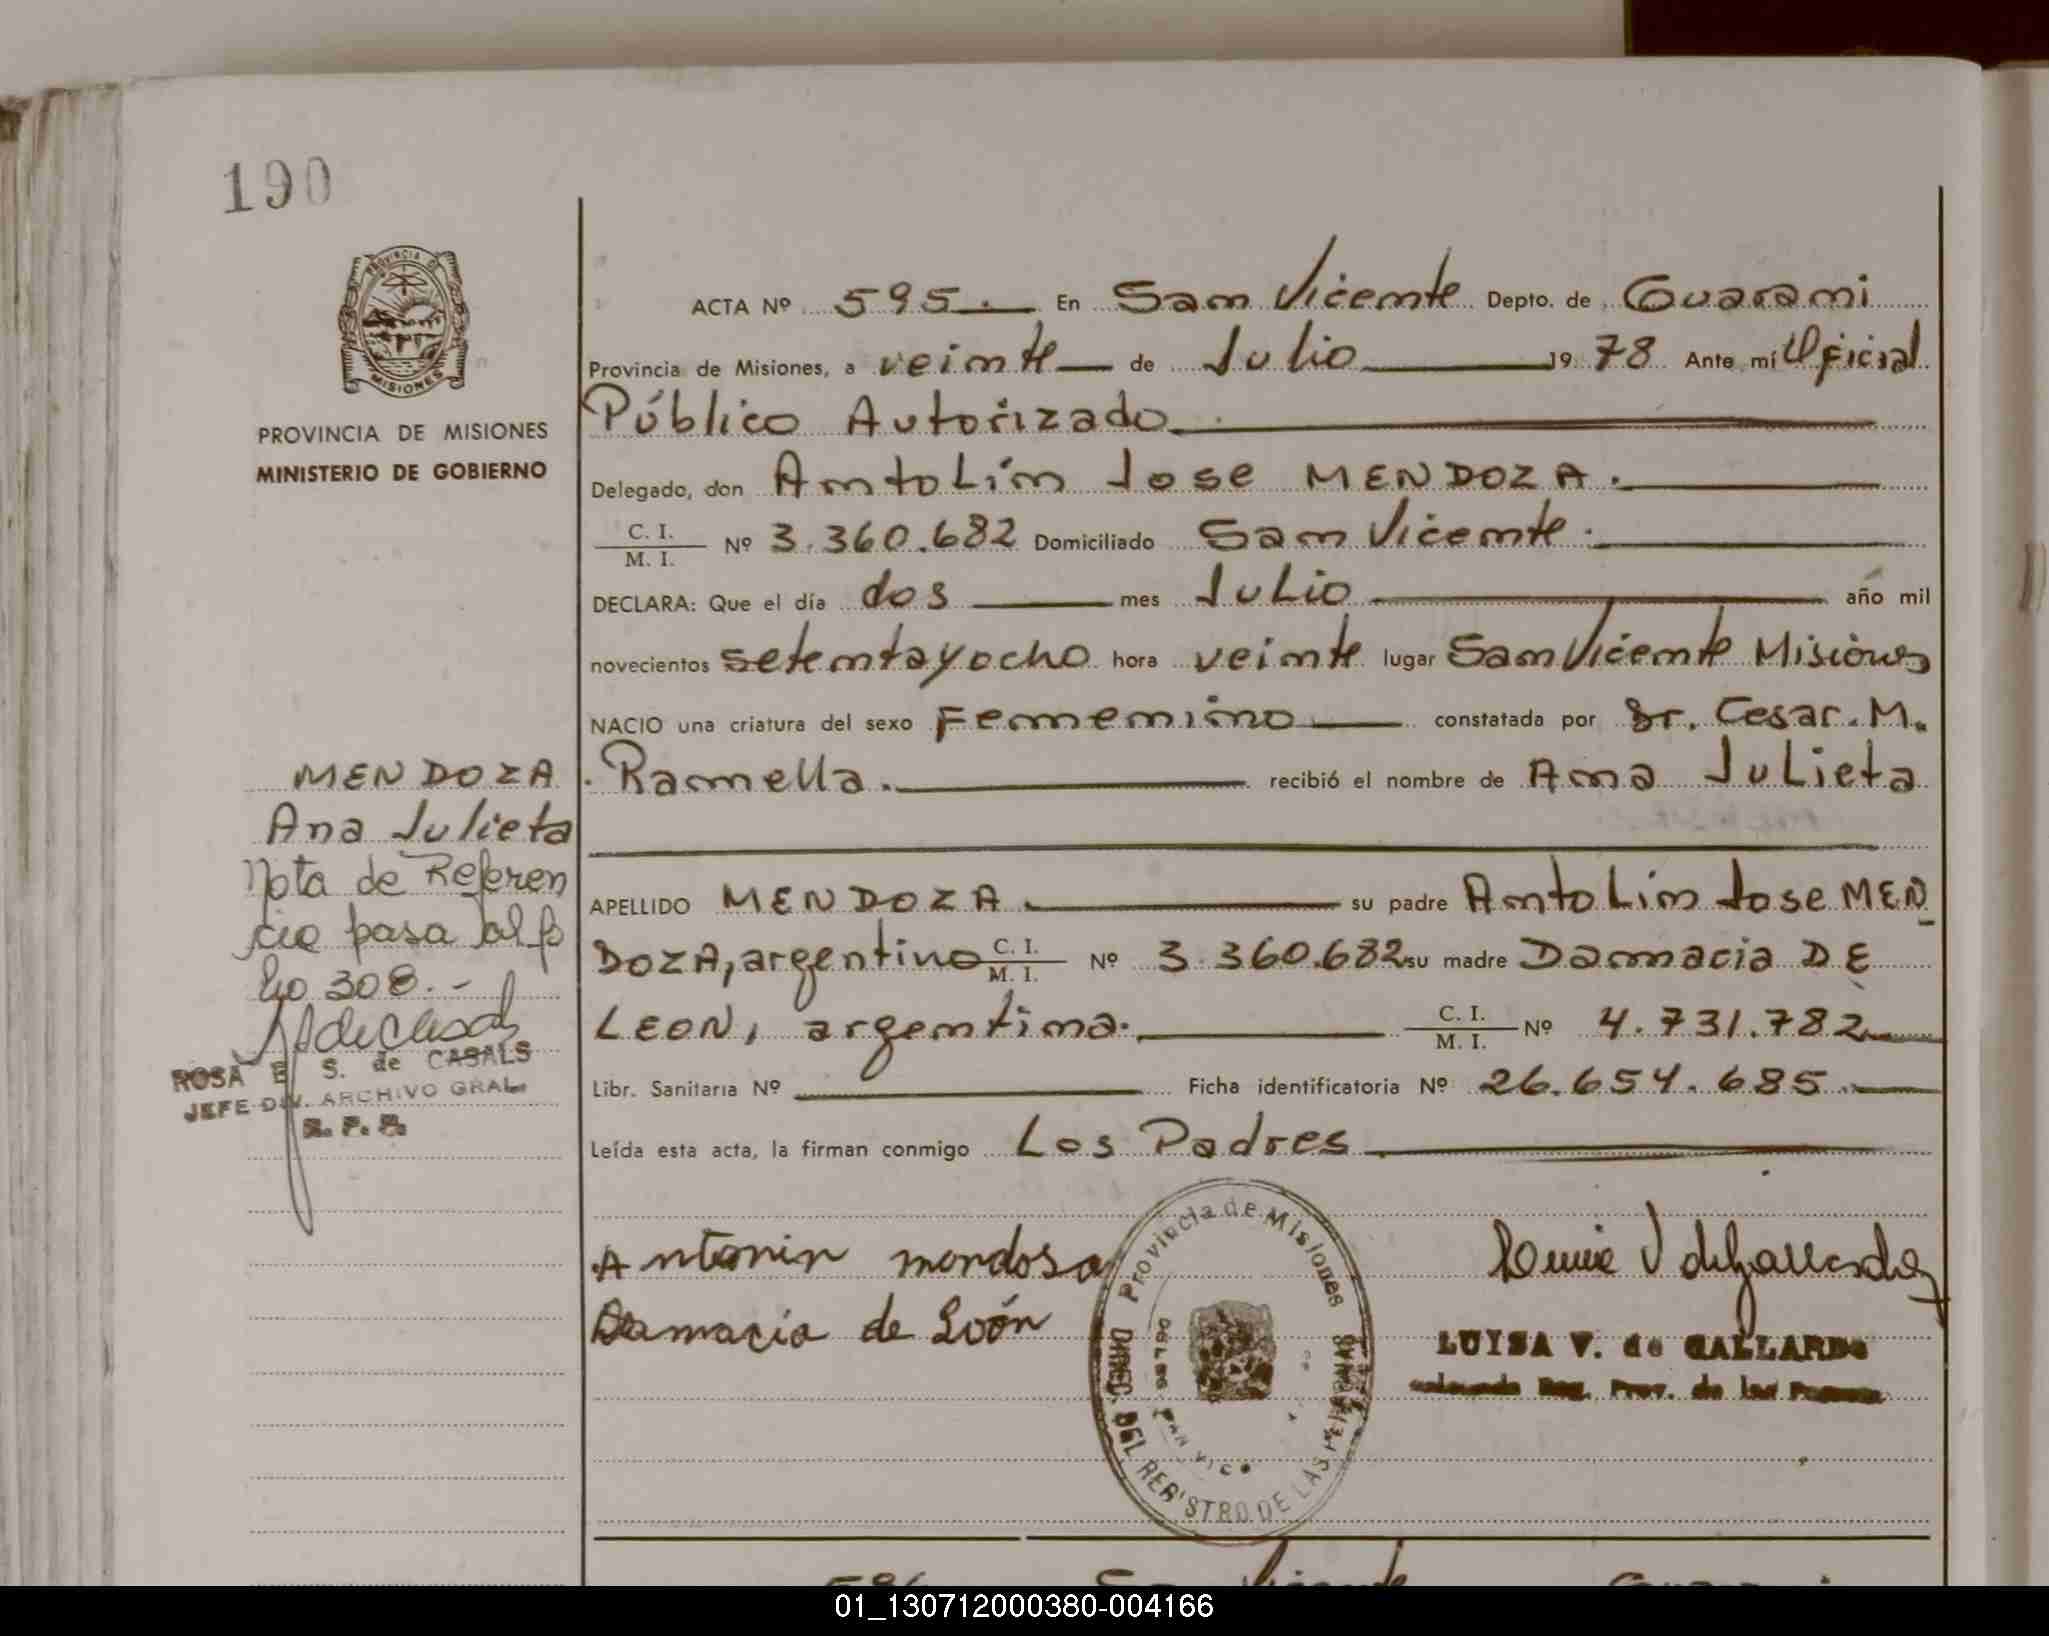 190
PROVINCIA DE MISIONES
PROVINCIA DE MISIONES
MINISTERIO DE GOBIERNO
ACTA Nº 595. En San Vicente Depto. de Guarani
Provincia de Misiones, a veinte de Julio 1978 Ante mí Oficial
Público Autorizado
Delegado, don Antolín Jose MENDOZA.
C. I.
M. I. Nº 3.360.682 Domiciliado San Vicente.
DECLARA: Que el día dos mes Julio año mil
novecientos setentayocho hora veinte lugar San Vicente Misiones
NACIO una criatura del sexo Femenino constatada por Dr. Cesar. M.
Ramella. recibió el nombre de Ana Julieta
APELLIDO MENDOZA. su padre Antolín Jose MEN
DOZA, argentino C. I.
M. I. Nº 3.360.682 su madre Damacia DE
LEON, argentina. C. I.
M. I. Nº 4.731.782
Libr. Sanitaria Nº Ficha identificatoria Nº 26.654.685.
Leída esta acta, la firman conmigo Los Padres
MENDOZA
Ana Julieta
Nota de Referen
cia pasa al fo
lio 308.-
ROSA E. S. de CASALS
JEFE DIV. ARCHIVO GRAL.
R. P. P.
Antonin mondosa
Damacia de León
Provincia de Misiones
DIREC. DEL REGISTRO DE LAS PERSONAS
LUISA V. de GALLARDO
Reg. Prov. de las Personas
596 San Vicente Guarani
01_130712000380-004166